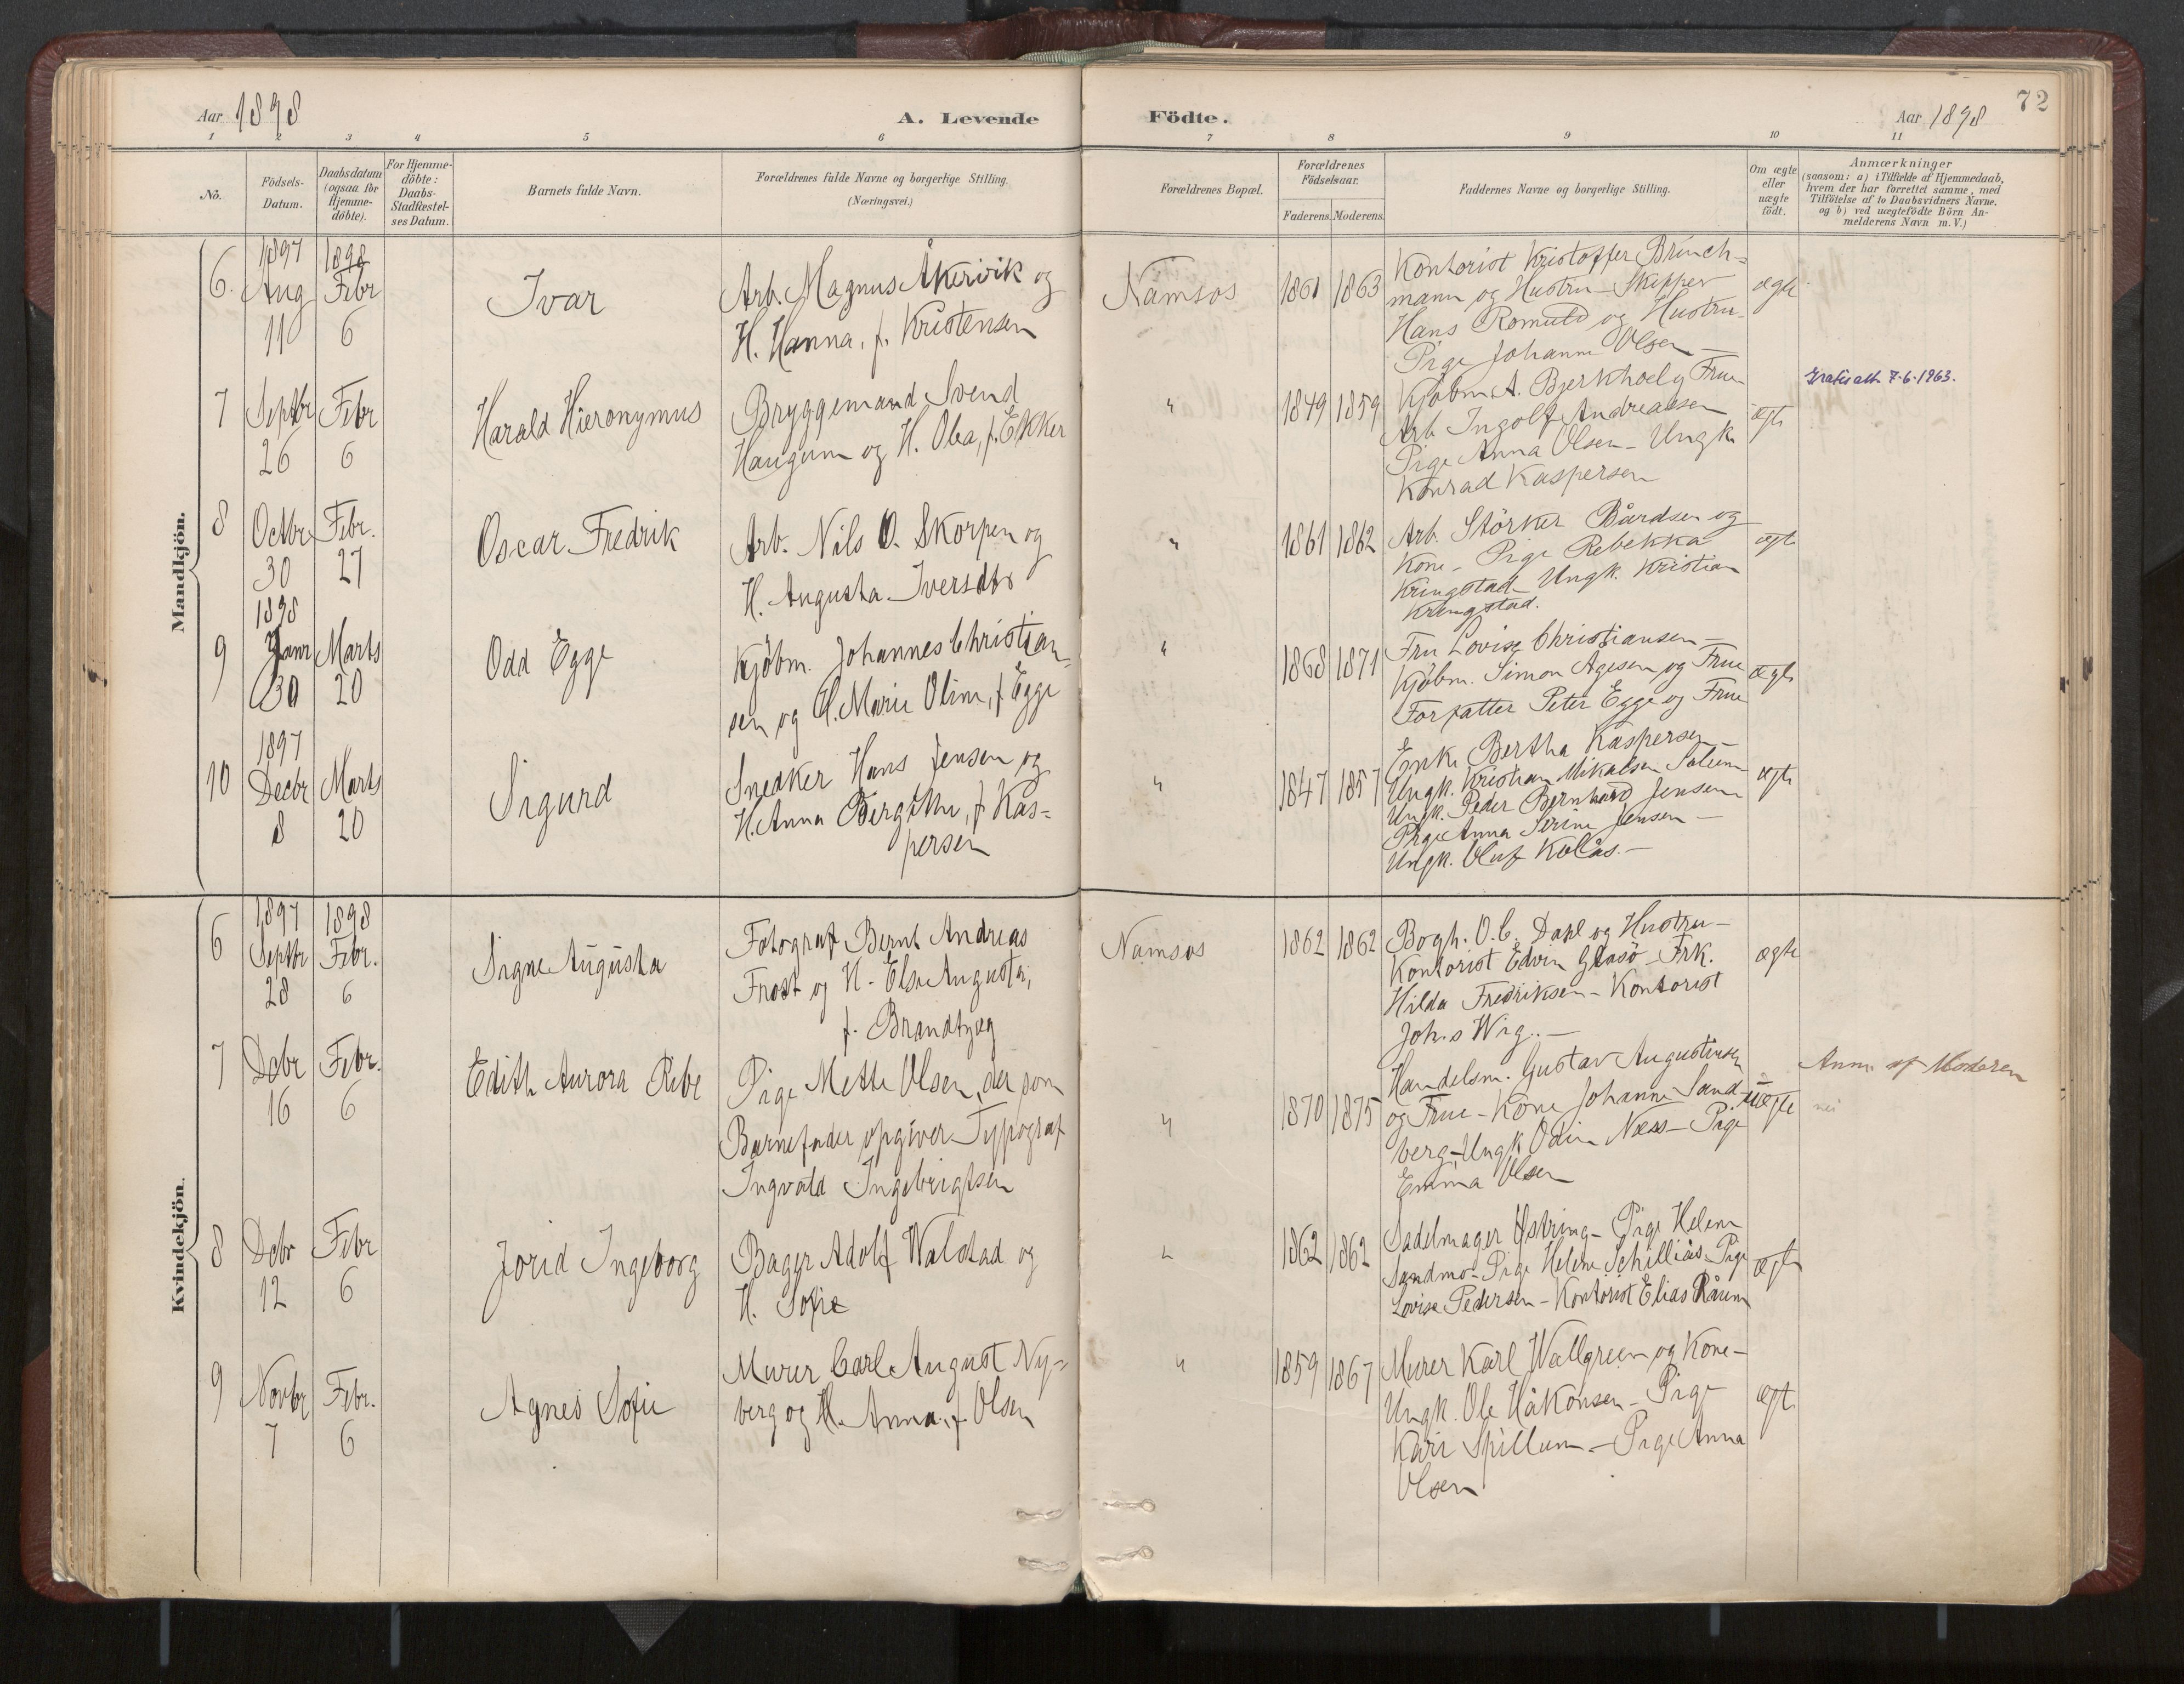 Aar 1898
A. Levende
Födte.
Aar 1898
72
1 2 3 4 5 6 7 8 9 10 11
No.
Födsels-
Datum.
Daabsdatum
(ogsaa for
Hjemme-
döbte).
For Hjemme-
döbte:
Daabs-
Stadfæstel-
ses Datum.
Barnets fulde Navn.
Forældrenes fulde Navne og borgerlige Stilling.
(Næringsvei.)
Forældrenes Bopæl.
Forældrenes
Födselsaar.
Faderens. Moderens.
Faddernes Navne og borgerlige Stilling.
Om ægte
eller
uægte
födt.
Anmærkninger
(saasom: a) i Tilfælde af Hjemmedaab,
hvem der har forrettet samme, med
Tilföielse af to Daabsvidners Navne.
og b) ved uægtefödte Börn An-
melderens Navn m. V.)
Mandkjön.
6.
1897
Aug
11
1898
Febr
6
Ivar
Arb. Magnus Åkervik og
H. Hanna, f. Kristensen
Namsos
1861 1863
Kontorist Kristoffer Brinch-
mann og Hustru - Skipper
Hans Romuld og Hustru -
Pige Johanne Olsen -
ægte
7
Septbr
26
Febr
6
Harald Hieronymus
Bryggemand Svend
Haugum og H. Olea, f. Ekker
"
1849 1859
Kjøbm. A. Bjerkhoel og Frue
Arb Ingolf Andreassen
Pige Anna Olsen - Ungk.
Konrad Kaspersen
ægte
Gratis att. 7.6.1963.
8
Octbr
30
Febr.
27
Oscar Fredrik
Arb. Nils O. Skorpen og
H. Augusta Iversdtr
"
1861 1862
Arb. Störker Bårdsen og
Kone - Pige Rebekka
Kringstad - Ungk. Kristian
Kringstad.
ægte
9
1898
Janr
30
Marts
20
Odd Egge
Kjöbm. Johannes Christian-
sen og H. Marie Oline, f. Egge
"
1868 1871
Fru Lovise Christiansen -
Kjöbm. Simon Agesen og Frue
Forfatter Peter Egge og Frue
ægte
10
1897
Decbr
8
Marts
20
Sigurd
Snedker Hans Jensen og
H. Anna Bergithe, f. Kas-
persen
"
1847 1857
Enke Bertha Kaspersen -
Ungk. Kristian Mikalsen
Ungk. Peder Bernhard Jensen
Pige Anna Serine Jensen -
Ungk. Oluf Kolås. -
ægte
Kvindekjön.
6
1897
Septbr
28
1898
Febr.
6
Signe Augusta
Fotograf Bernt Andreas
Frost og H. Else Augusta,
f. Brandtzæg
Namsos
1862 1862
Bogh. O. C. Dahl og Hustru -
Kontorist Edvin Glasö - Frk.
Hilda Fredriksen - Kontorist
Joh.s Wig. -
ægte
7
Dcbr
16
Febr.
6
Edith Aurora Rebe
Pige Mette Olsen, der som
Barnefader opgiver Typograf
Ingvald Ingebrigtsen
"
1870 1875
Handelsm. Gustav Augustinsen
og Frue - Kone Johanne Sand-
berg - Ungk. Odin Næss - Pige
Emma Olsen
uægte
Anm. af Moderen
nei
8
Dcbr
12
Febr
6
Jorid Ingeborg
Bager Adolf Walstad og
H. Sofie
"
1862 1862
Sadelmager Østring - Pige Helene
Sandmo - Pige Helene Schilliås - Pige
Lovise Pedersen - Kontorist Elias Råum
ægte
9
Novbr
7
Febr.
6
Agnes Sofie
Murer Carl August Ny-
berg og H. Anna, f. Olsen
"
1859 1867
Murer Karl Wallgreen og Kone -
Ungk. Ole Håkonsen - Pige
Kari Spillum - Pige Anna
Olsen
ægte